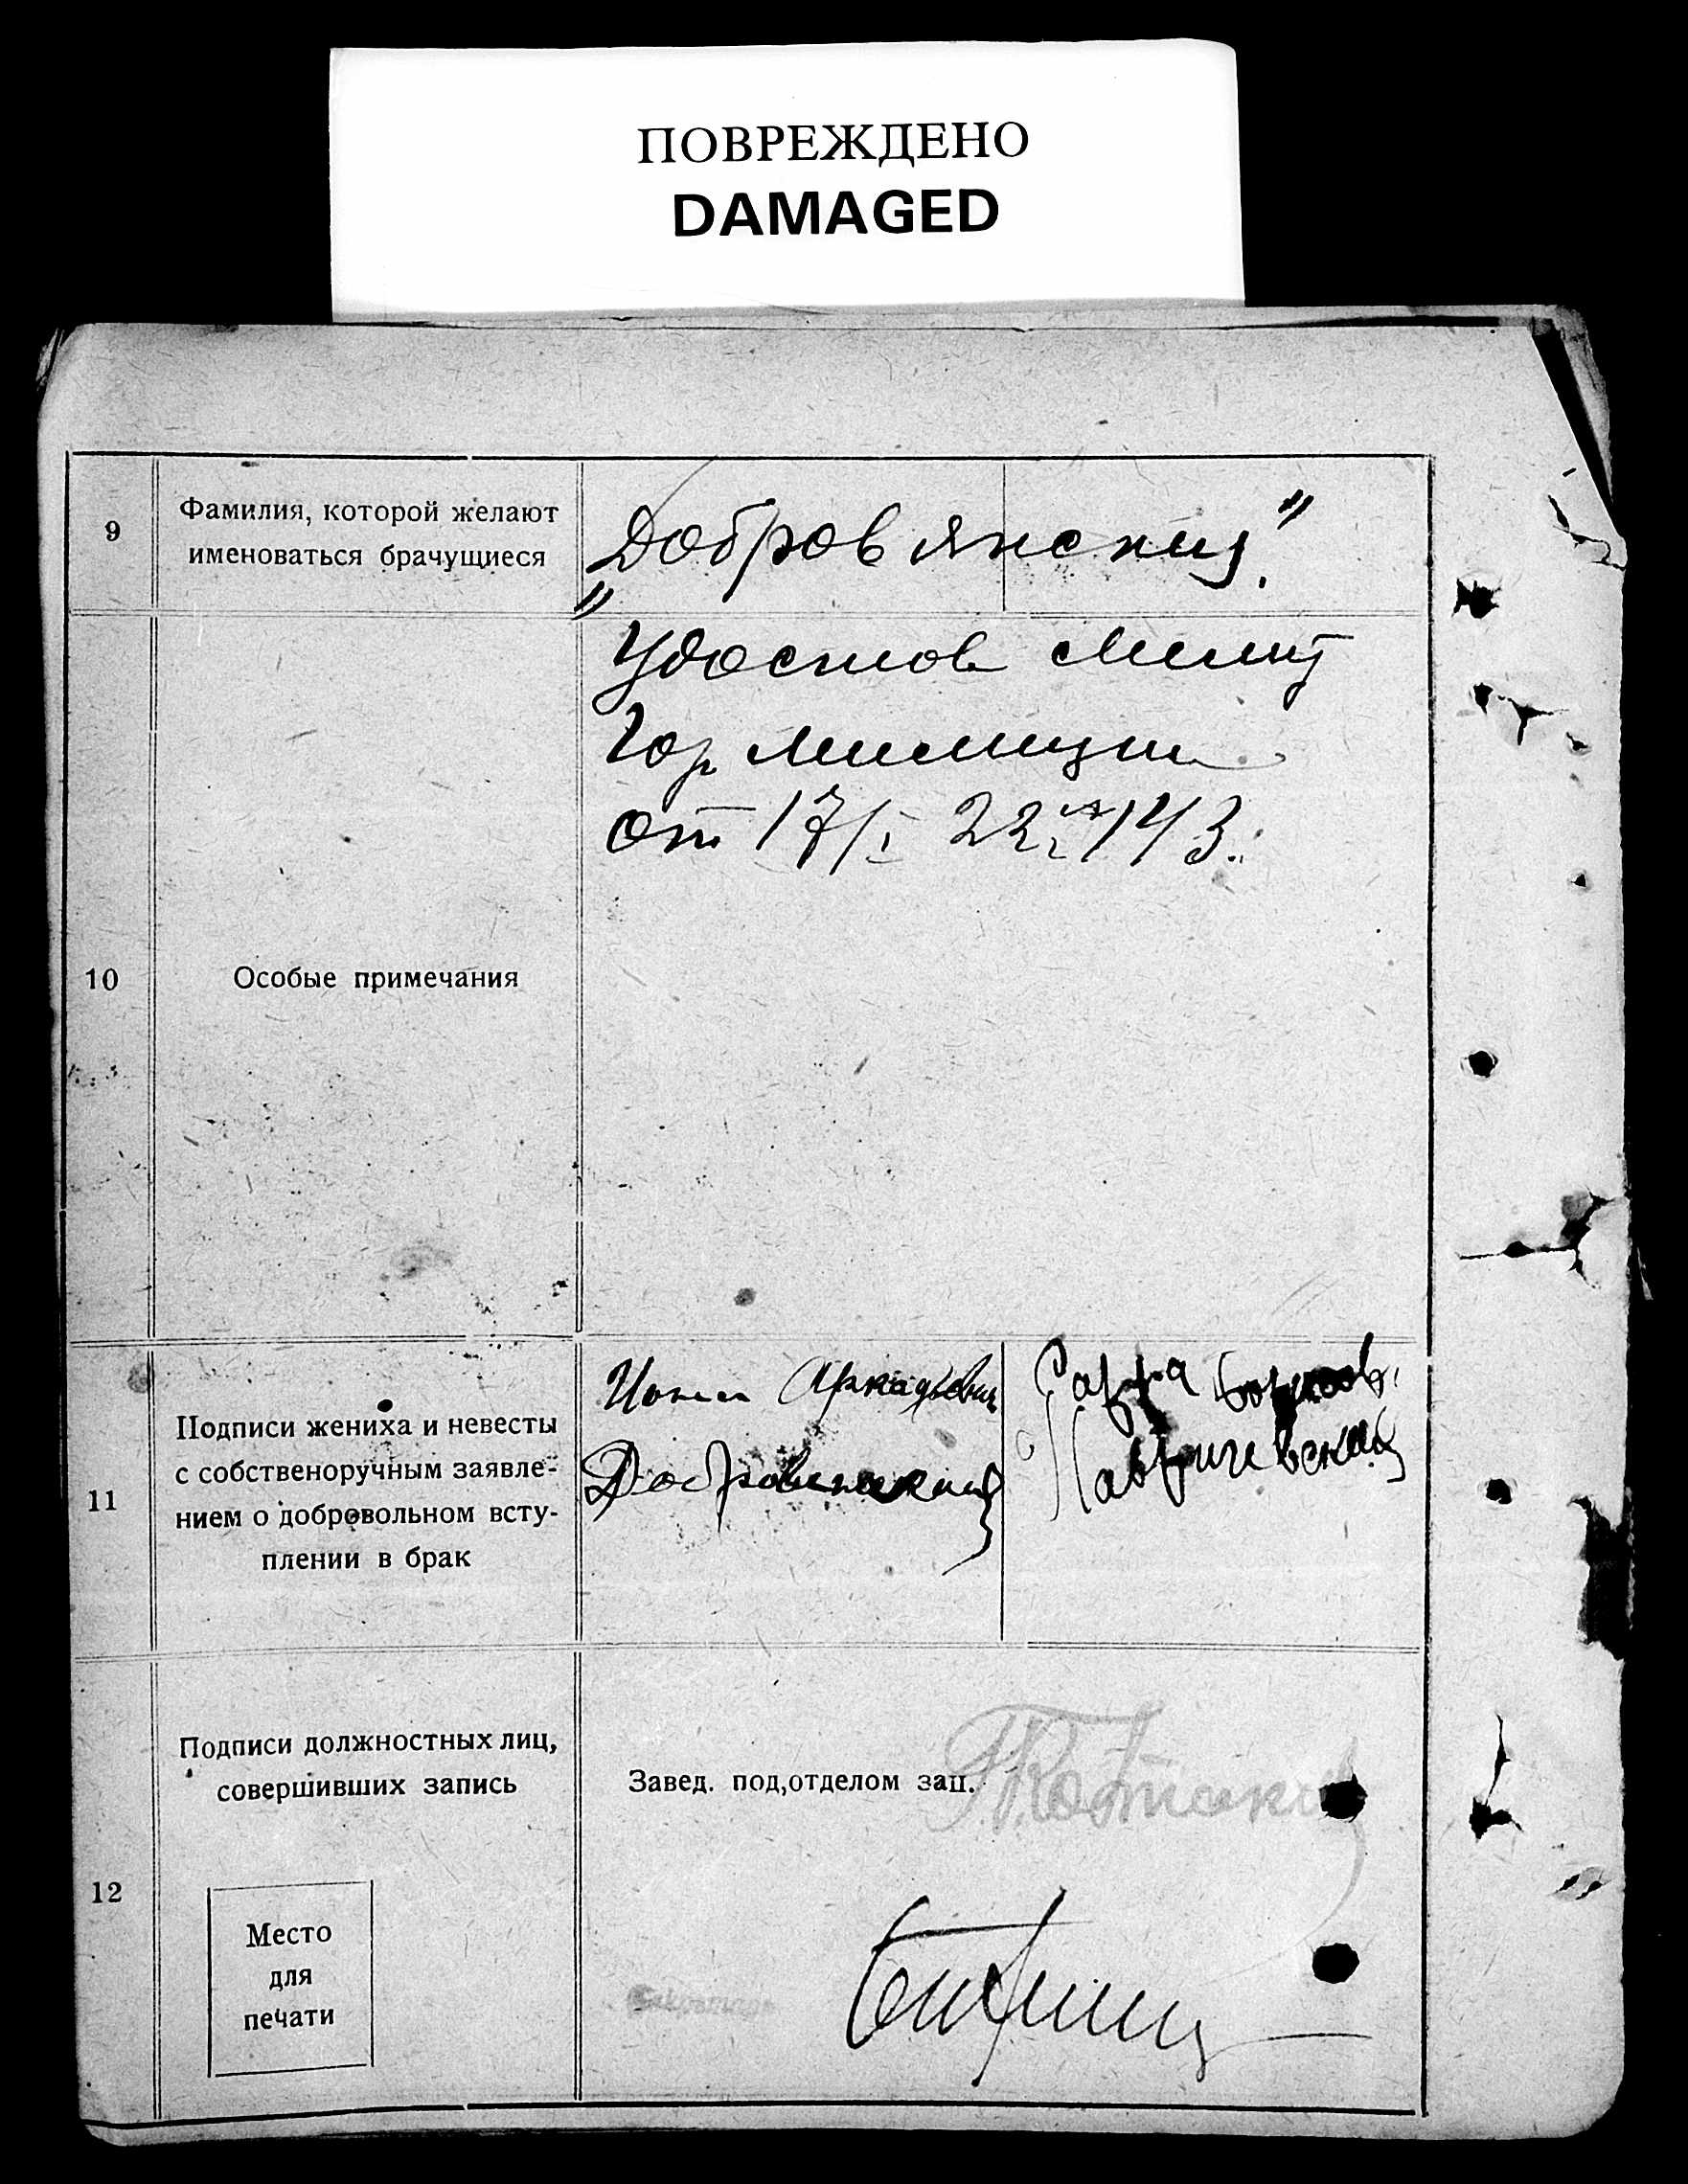 ПОВРЕЖДЕНО
DAMAGED
9
Фамилия, которой желают
именоваться брачущиеся
„Добровянский."
10
Особые примечания
Удостов
Гор Милиции
от 17/I 22 г № 143.
11
Подписи жениха и невесты
с собственоручным заявле-
нием о добровольном всту-
плении в брак
Аркадьевич
Добровянский
Сарра
Лавричевская
12
Подписи должностных лиц,
совершивших запись
Завед. под,отделом зап.
Место
для
печати